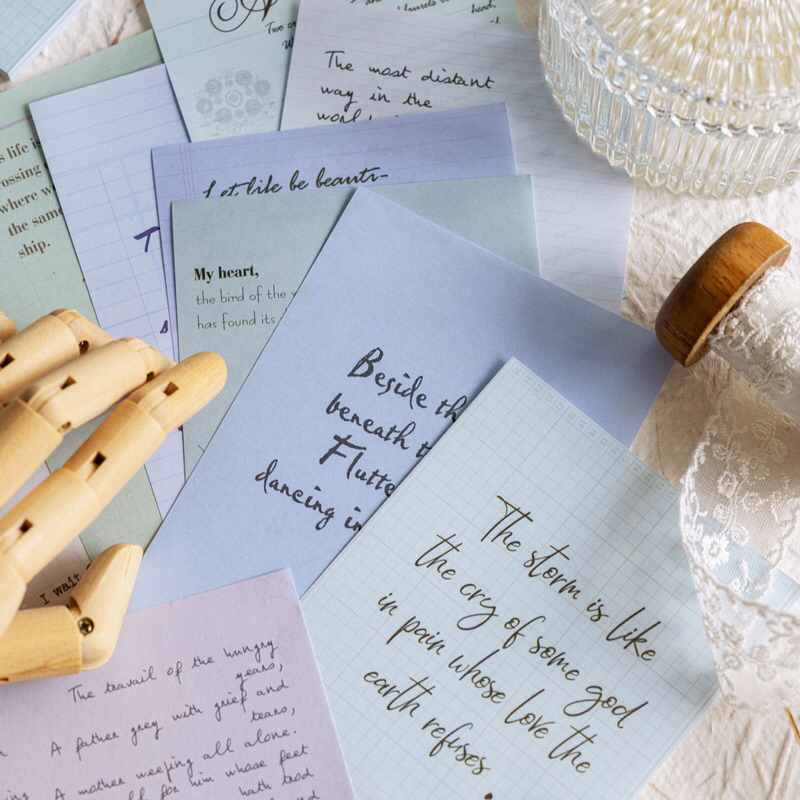 Two
The most distant
way in the
s life is
ossing
where w
the same
ship.
Let life be beauti-
My heart,
the bird of the
has found its
Beside th
beneath t
Flutte
dancing in
The storm is like
the cry of some god
in pain whose love the
earth refuses.
I wait
The travail of the hungry
years,
A father grey with grief and
tears,
A mother weeping all alone.
for him whose feet
hath trod